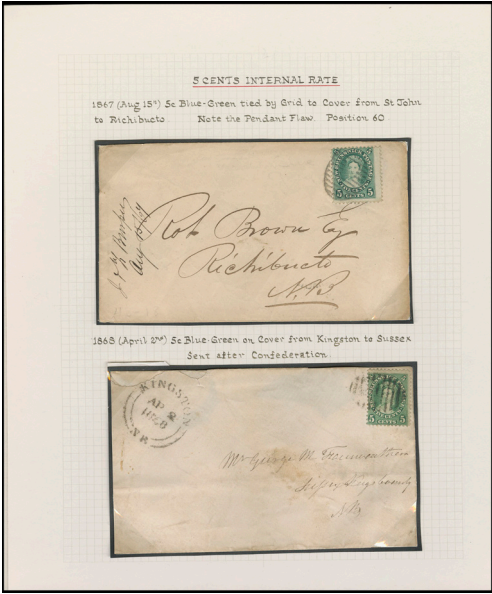 5 CENTS INTERNAL RATE
1867 (Aug 15th) 5c Blue-Green tied by Grid to Cover from St John
to Richibucto Note the Pendant Flaw. Position 60.
5 5
CENTS
Aug
Robt Brown Esq
Richibucto
N.B
1868 (April 2nd) 5c Blue-Green on Cover from Kingston to Sussex
Sent after Confederation
KINGSTON
AP 2
1868
N.B.
5 5
CENTS
Mr George M.
N.B.